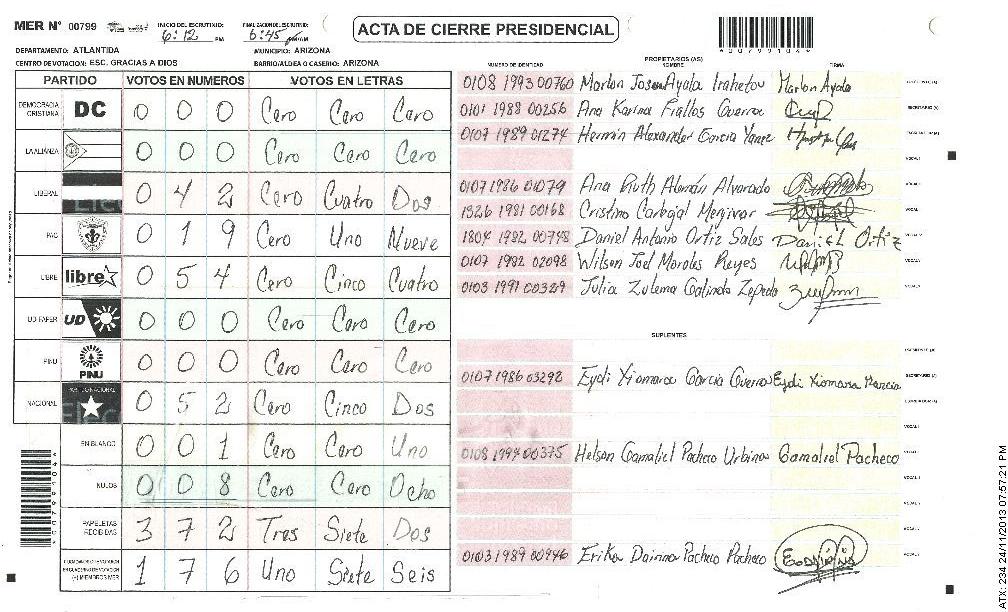 MER N° 00799
INICIO DEL ESCRUTINIO: 6:12 PM
FINALIZACION DEL ESCRUTINIO: 6:45 PM/AM
ACTA DE CIERRE PRESIDENCIAL
00799104
DEPARTAMENTO: ATLANTIDA
MUNICIPIO: ARIZONA
CENTRO DE VOTACION: ESC. GRACIAS A DIOS
BARRIO/ALDEA O CASERIO: ARIZONA
PARTIDO VOTOS EN NUMEROS VOTOS EN LETRAS
DEMOCRACIA CRISTIANA DC 0 0 0 Cero Cero Cero
LA ALIANZA 0 0 0 Cero Cero Cero
LIBERAL 0 4 2 Cero Cuatro Dos
PAC 0 1 9 Cero Uno Nueve
LIBRE libre 0 5 4 Cero Cinco Cuatro
UD FAPER UD 0 0 0 Cero Cero Cero
PINU PINU 0 0 0 Cero Cero Cero
NACIONAL PARTIDO NACIONAL 0 5 2 Cero Cinco Dos
EN BLANCO 0 0 1 Cero Cero Uno
NULOS 0 0 8 Cero Cero Ocho
PAPELETAS RECIBIDAS 3 7 2 Tres Siete Dos
(+) MIEMBROS MER 1 7 6 Uno Siete Seis
PROPIETARIOS (AS)
NUMERO DE IDENTIDAD NOMBRE FIRMA
0108 1993 00760 Marlon Josue Ayala Marlon Ayala
0101 1988 00256 Ana Karina Fiallos Guerra SECRETARIO (A)
0107 1989 01274 Hermin Alexander Garcia Yanez
VOCAL I
0107 1986 01079 Ana Ruth Alemán Alvarado
1326 1981 00168 Cristino Carbajal Menjivar
1804 1982 00748 Daniel Antonio Ortiz Sales Daniel Ortiz
0107 1982 02098 Wilson Joel Morales Reyes
0103 1991 00329 Julia Zulema Galindo Zepeda
SUPLENTES
0107 1986 03298 Eydi Xiomara Garcia Guerra Eydi Xiomara Garcia SECRETARIO (A)
0108 1994 00375 Helson Gamaliel Pacheco Urbina Gamaliel Pacheco
0103 1989 00946 Erika Dairina Pacheco Pacheco
ATX: 234 24/11/2013 07:57:21 PM